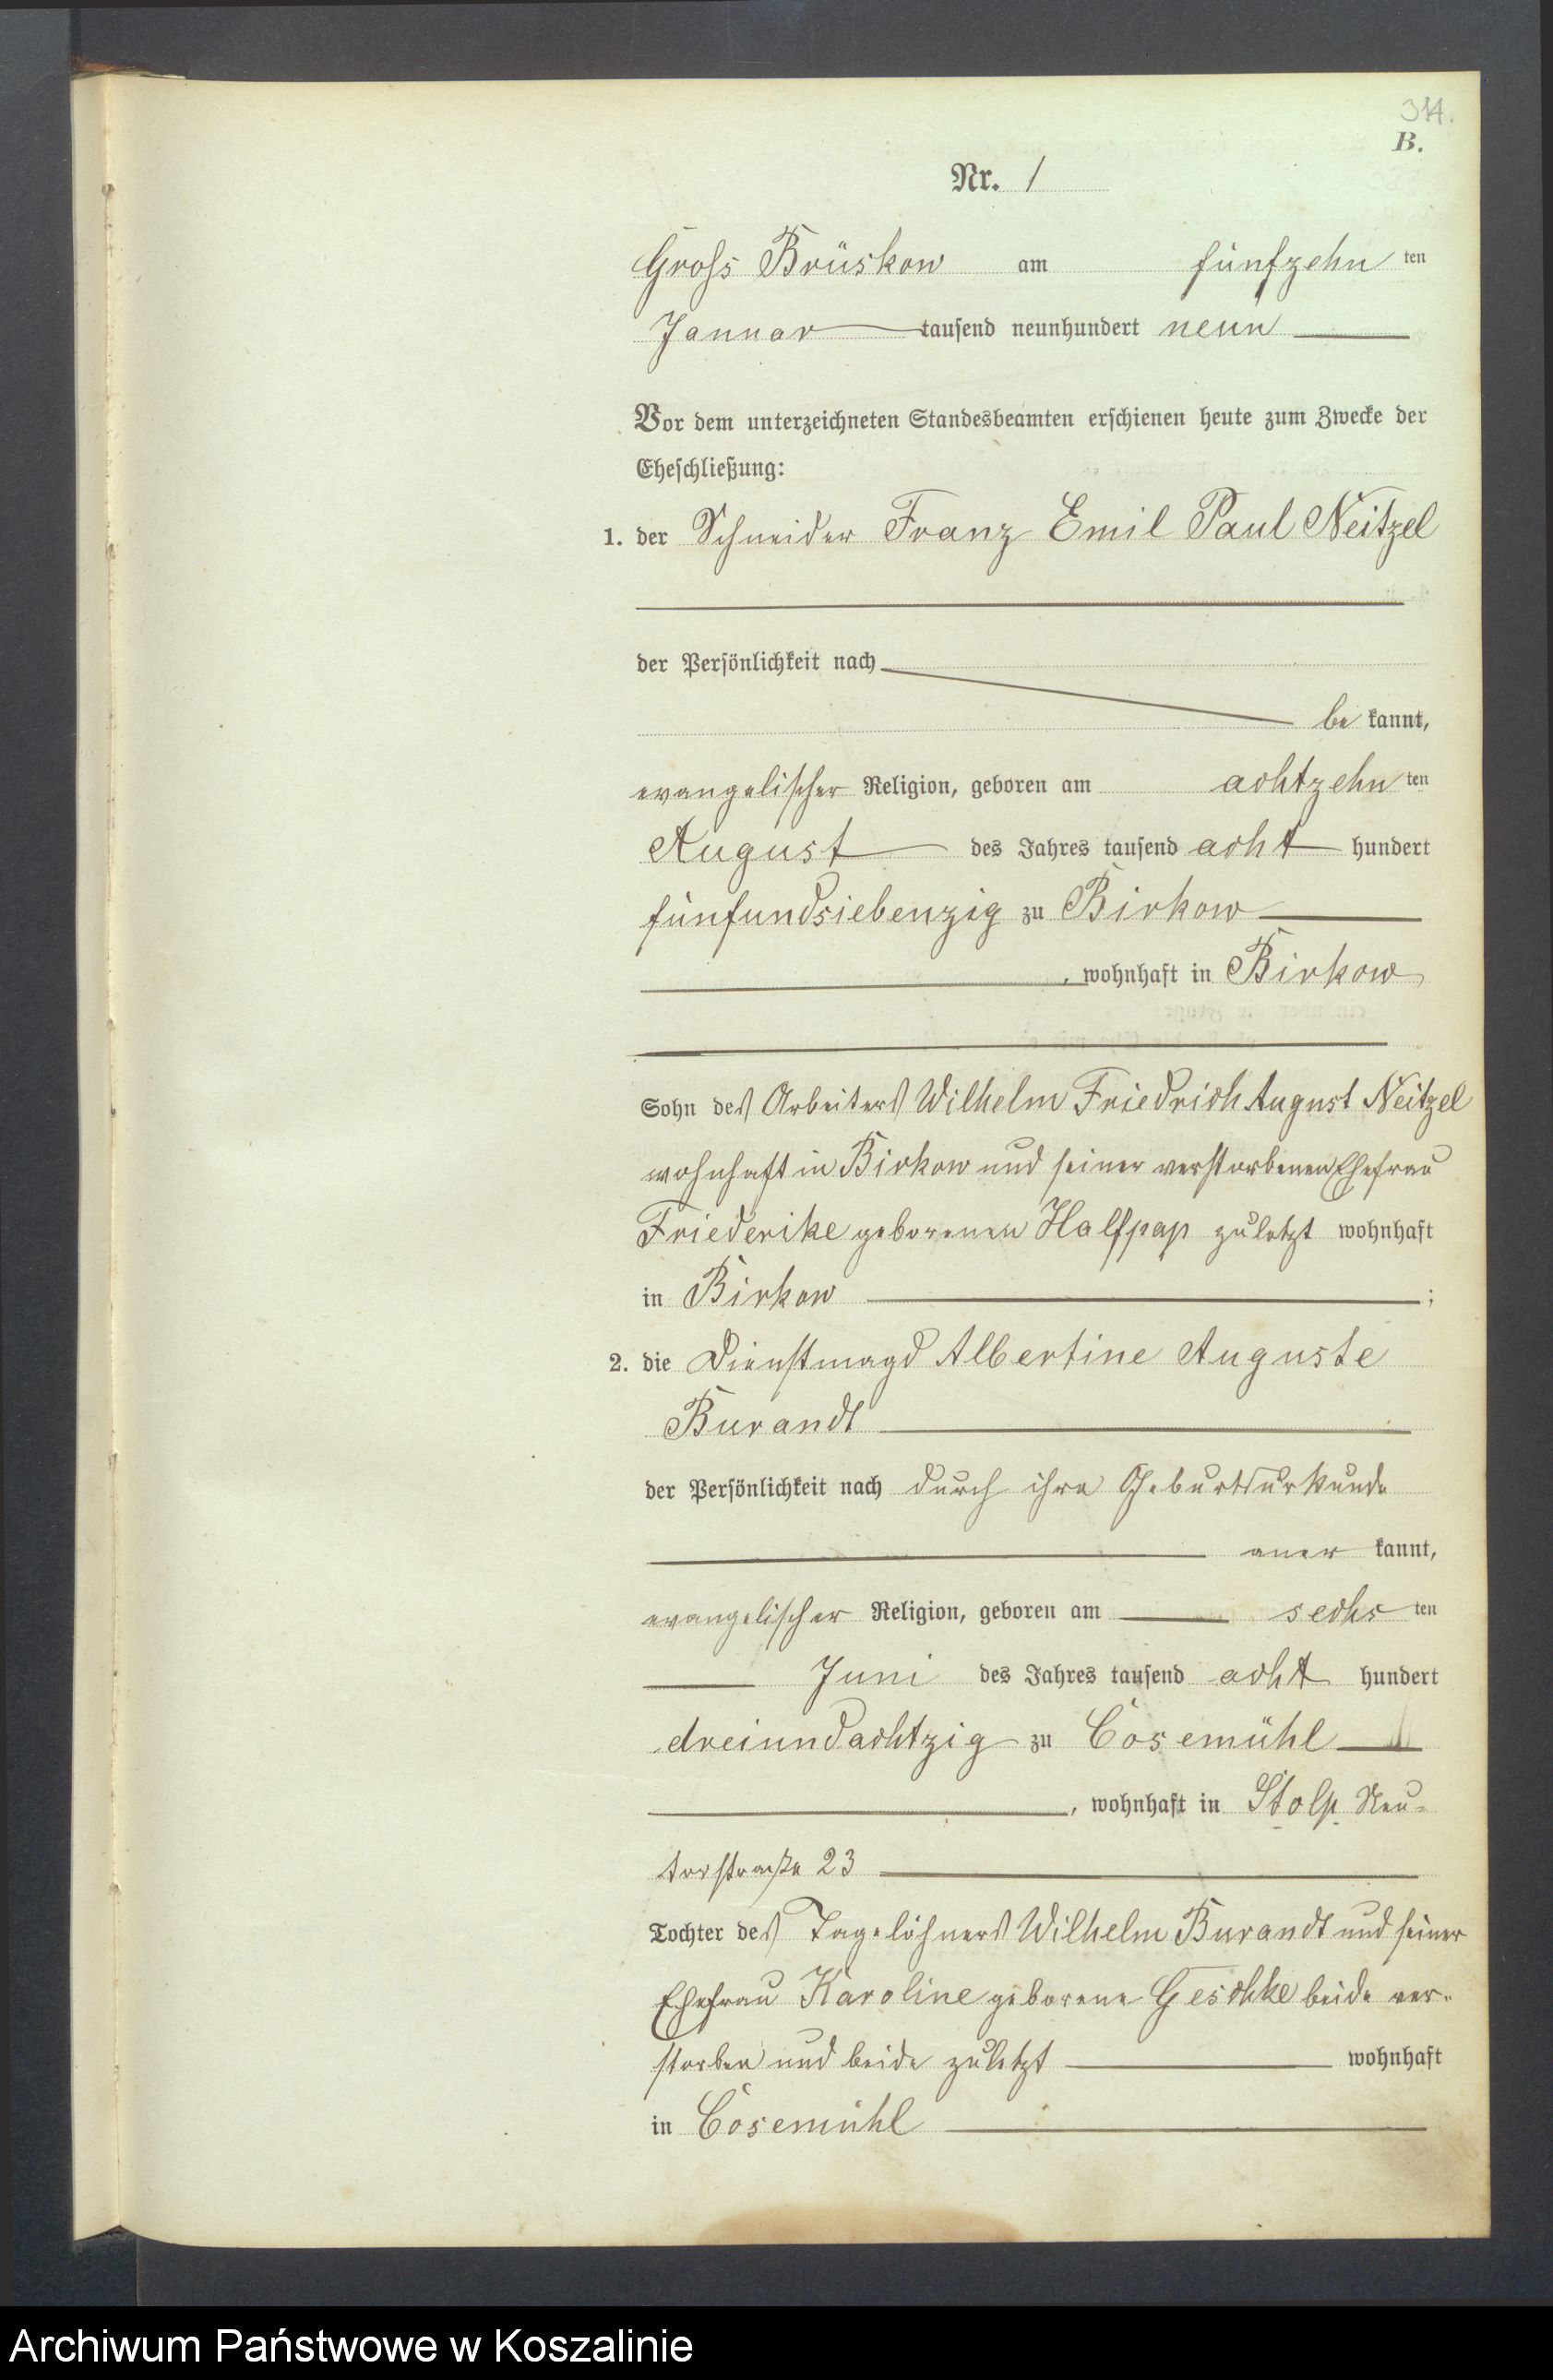 314.
B.
Nr. 1
Gross Brüskow am fünfzehn ten
Januar tausend neunhundert neun
Vor dem unterzeichneten Standesbeamten erschienen heute zum Zwecke der
Eheschließung:
1. der Schneider Franz Emil Paul Neitzel
der Persönlichkeit nach
be kannt,
evangelischer Religion, geboren am achtzehn ten
August des Jahres tausend acht hundert
fünfundsiebenzig zu Birkow
, wohnhaft in Birkow
Sohn des Arbeiters Wilhelm Friedrich August Neitzel
wohnhaft in Birkow und seiner verstorbenen Ehefrau
Friederike geborenen Halfpap zuletzt wohnhaft
in Birkow ;
2. die Dienstmagd Albertine Auguste
Burandt
der Persönlichkeit nach durch ihre Geburtsurkunde
aner kannt,
evangelischer Religion, geboren am sechs ten
Juni des Jahres tausend acht hundert
dreiundachtzig zu Cosemühl
, wohnhaft in Stolp Neu-
torstraße 23
Tochter des Tagelöhners Wilhelm Burandt und seiner
Ehefrau Karoline geborene Geschke beide ver-
storben und beide zuletzt wohnhaft
in Cosemühl
Archiwum Państwowe w Koszalinie